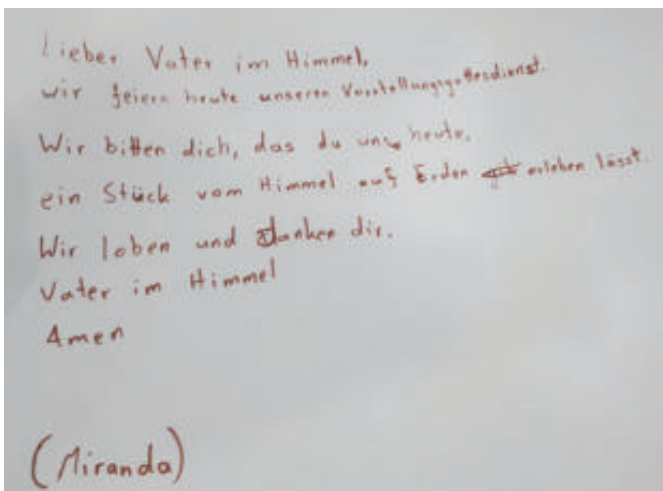 Lieber Vater im Himmel,
wir feiern heute unseren Vorstellungsgottesdienst.
Wir bitten dich, das du uns heute,
ein Stück vom Himmel auf Erden erleben lässt.
Wir loben und danken dir.
Vater im Himmel
Amen
(Miranda)